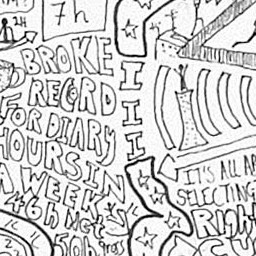 7h
2H
BROKE
RECORD
FOR DIARY
HOURS IN
A WEEK!
46h NET
50h gross
III
IT'S ALL AB
SELECTING
RIGH